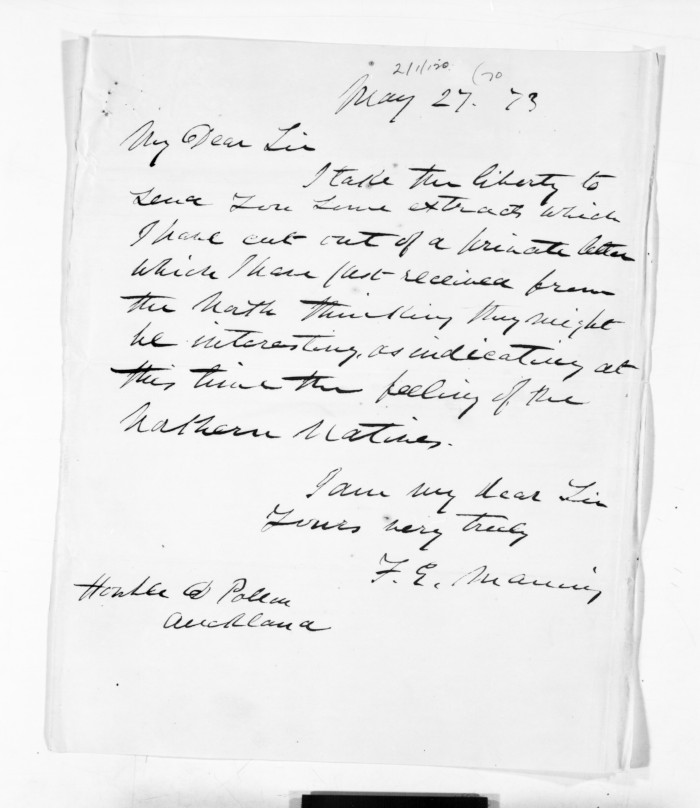 May 27. 73
My Dear Sir
I take the liberty to
send you some extracts which
I have cut out of a private letter
which I have just received from
the North thinking they might
be interesting, as indicating at
this time the feeling of the
Northern Natives.
I am my dear Sir
Yours very truly
F. E. Maning
Honble D Pollen
Auckland